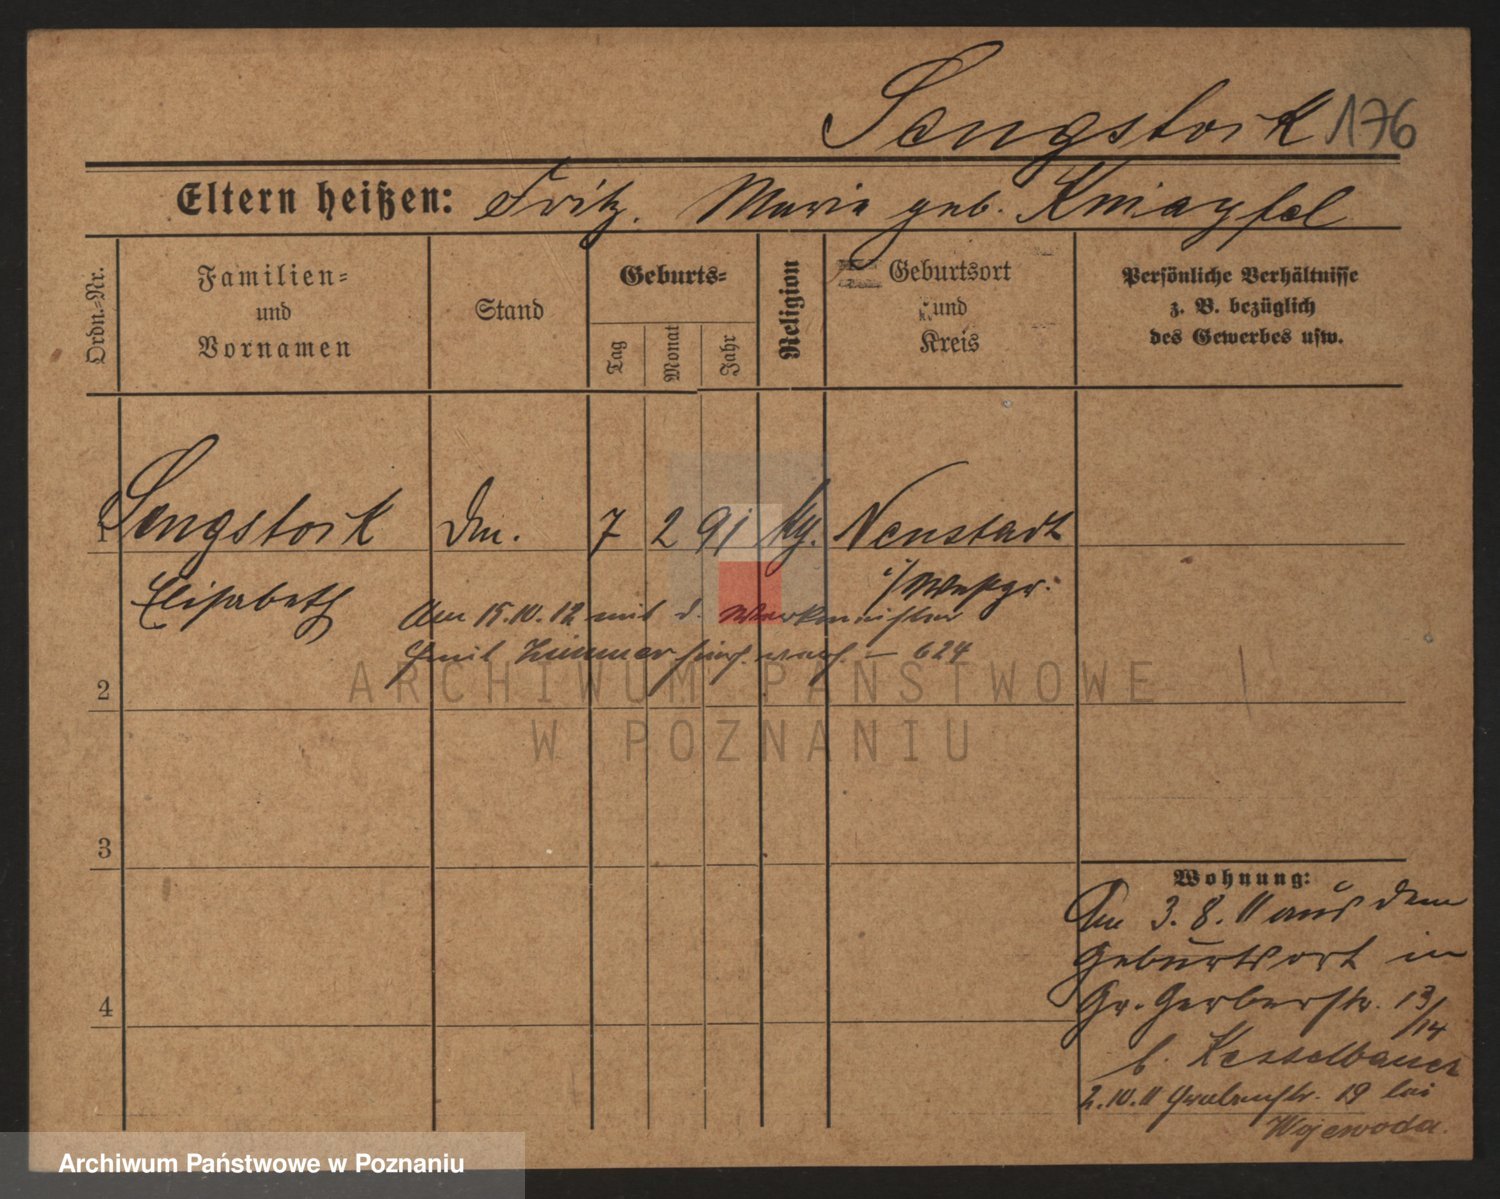 Sengstock 176
Eltern heißen: Fritz. Marie geb.
Ordn.-Nr.
Familien-
und
Vornamen
Stand
Geburts-
Tag
Monat
Jahr
Religion
Geburtsort
und
Kreis
Persönliche Verhältnisse
z. B. bezüglich
des Gewerbes usw.
1 Sengstock 7 2 91 Neustadt
Elisabeth i/Westpr.
Am 15.10.12 mit d. Werkmeister
Emil Zimmer 624
2
3
4
Wohnung:
Am 3. 8. 11 aus dem
Geburtsort in
Gr. Gerberstr. 13/14
b. Kesselbauer
2.10.11 Grabenstr. 19 bei
Wojewoda.
ARCHIWUM PAŃSTWOWE
W POZNANIU
Archiwum Państwowe w Poznaniu